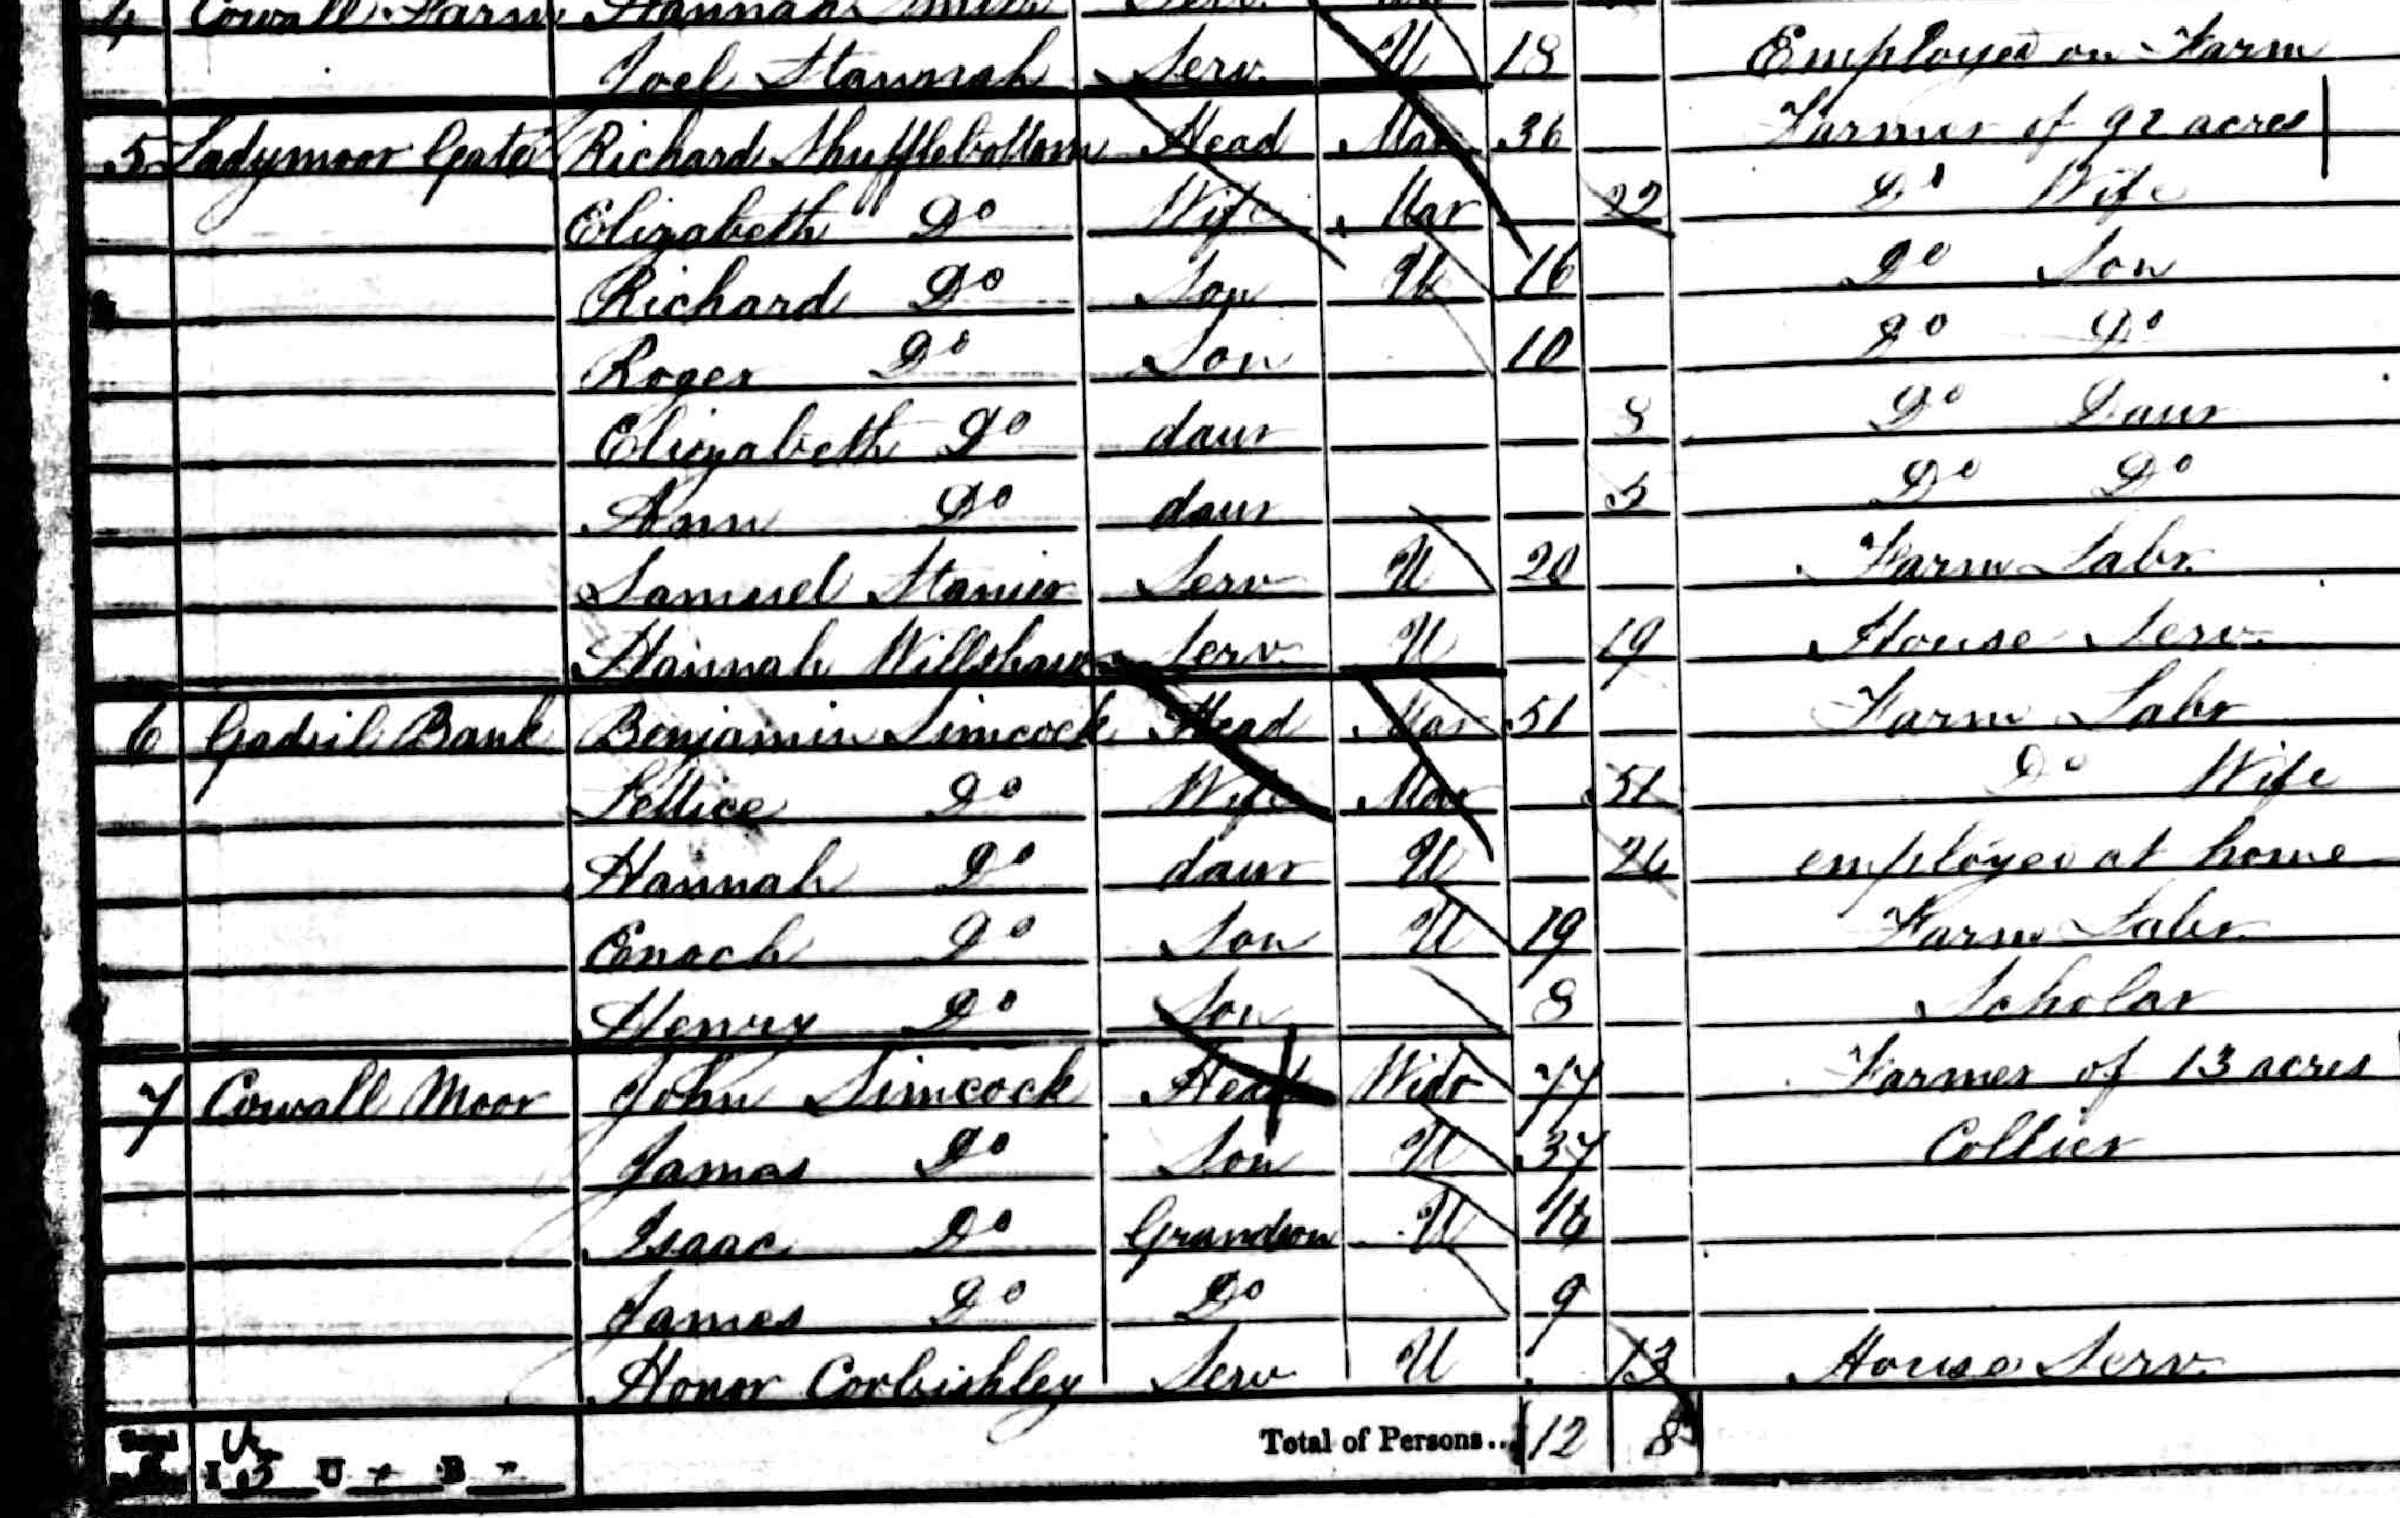 4 Cowall Farm Hannah Serv
Joel Hannah Serv. U 18 Employed on Farm
5 Ladymoor Gate Richard Shufflebottom Head Mar 36 Farmer of 92 acres
Elizabeth Do Wife Mar 22 Do Wife
Richard Do Son U 16 Do Son
Roger Do Son 10 Do Do
Elizabeth Do daur 8 Do Daur
Ann Do daur 5 Do Do
Samuel Stanier Serv U 20 Farm Labr.
Hannah Willshaw Serv. U 19 House Serv.
6 Bank Benjamin Simcock Head Mar 51 Farm Labr
Do Wife Mar 51 Do Wife
Hannah Do daur U 26 employed at home
Enoch Do Son U 19 Farm Labr.
Henry Do Son 8 Scholar
7 Cowall Moor John Simcock Head Widr 77 Farmer of 13 acres
James Do Son U 37 Collier
Isaac Do Grandson U
James Do Do 9
Honor Corbishley Serv U 13 House Serv.
I U B Total of Persons... 12 8